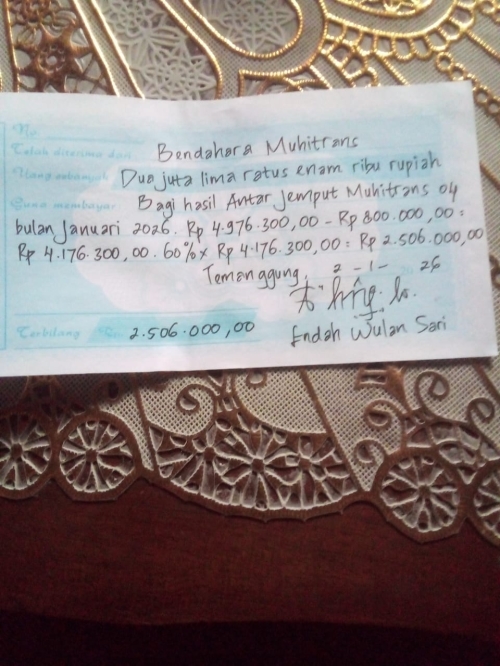 No.
Telah diterima dari Bendahara Muhitrans
Uang sebanyak Dua juta lima ratus enam ribu rupiah
Guna membayar Bagi hasil Antar Jemput Muhitrans 04
bulan Januari 2026. Rp 4.976.300,00 - Rp 800.000,00 =
Rp 4.176.300,00. 60% x Rp 4.176.300,00 = Rp 2.506.000,00
Temanggung, 2 - 1 - 26
Terbilang Rp. 2.506.000,00
Endah Wulan Sari